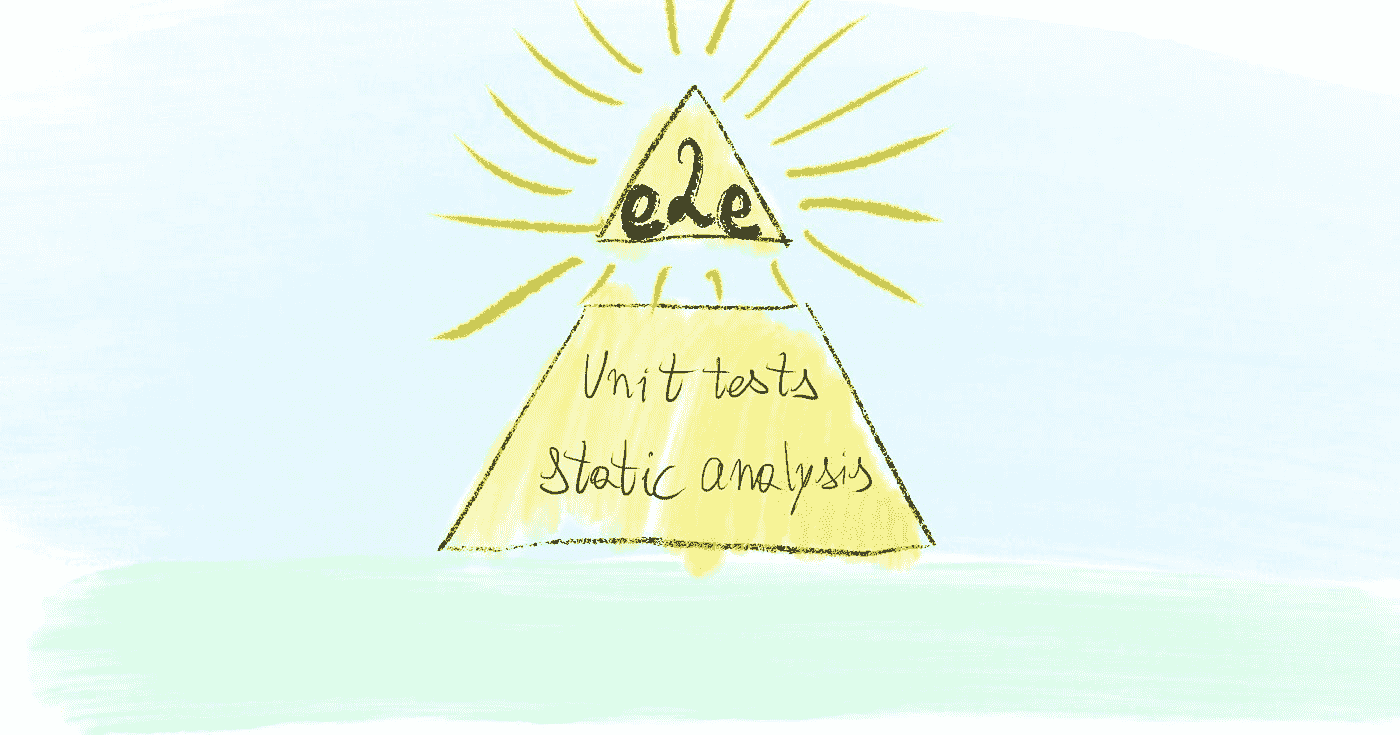 e2e
Unit tests
static analysis